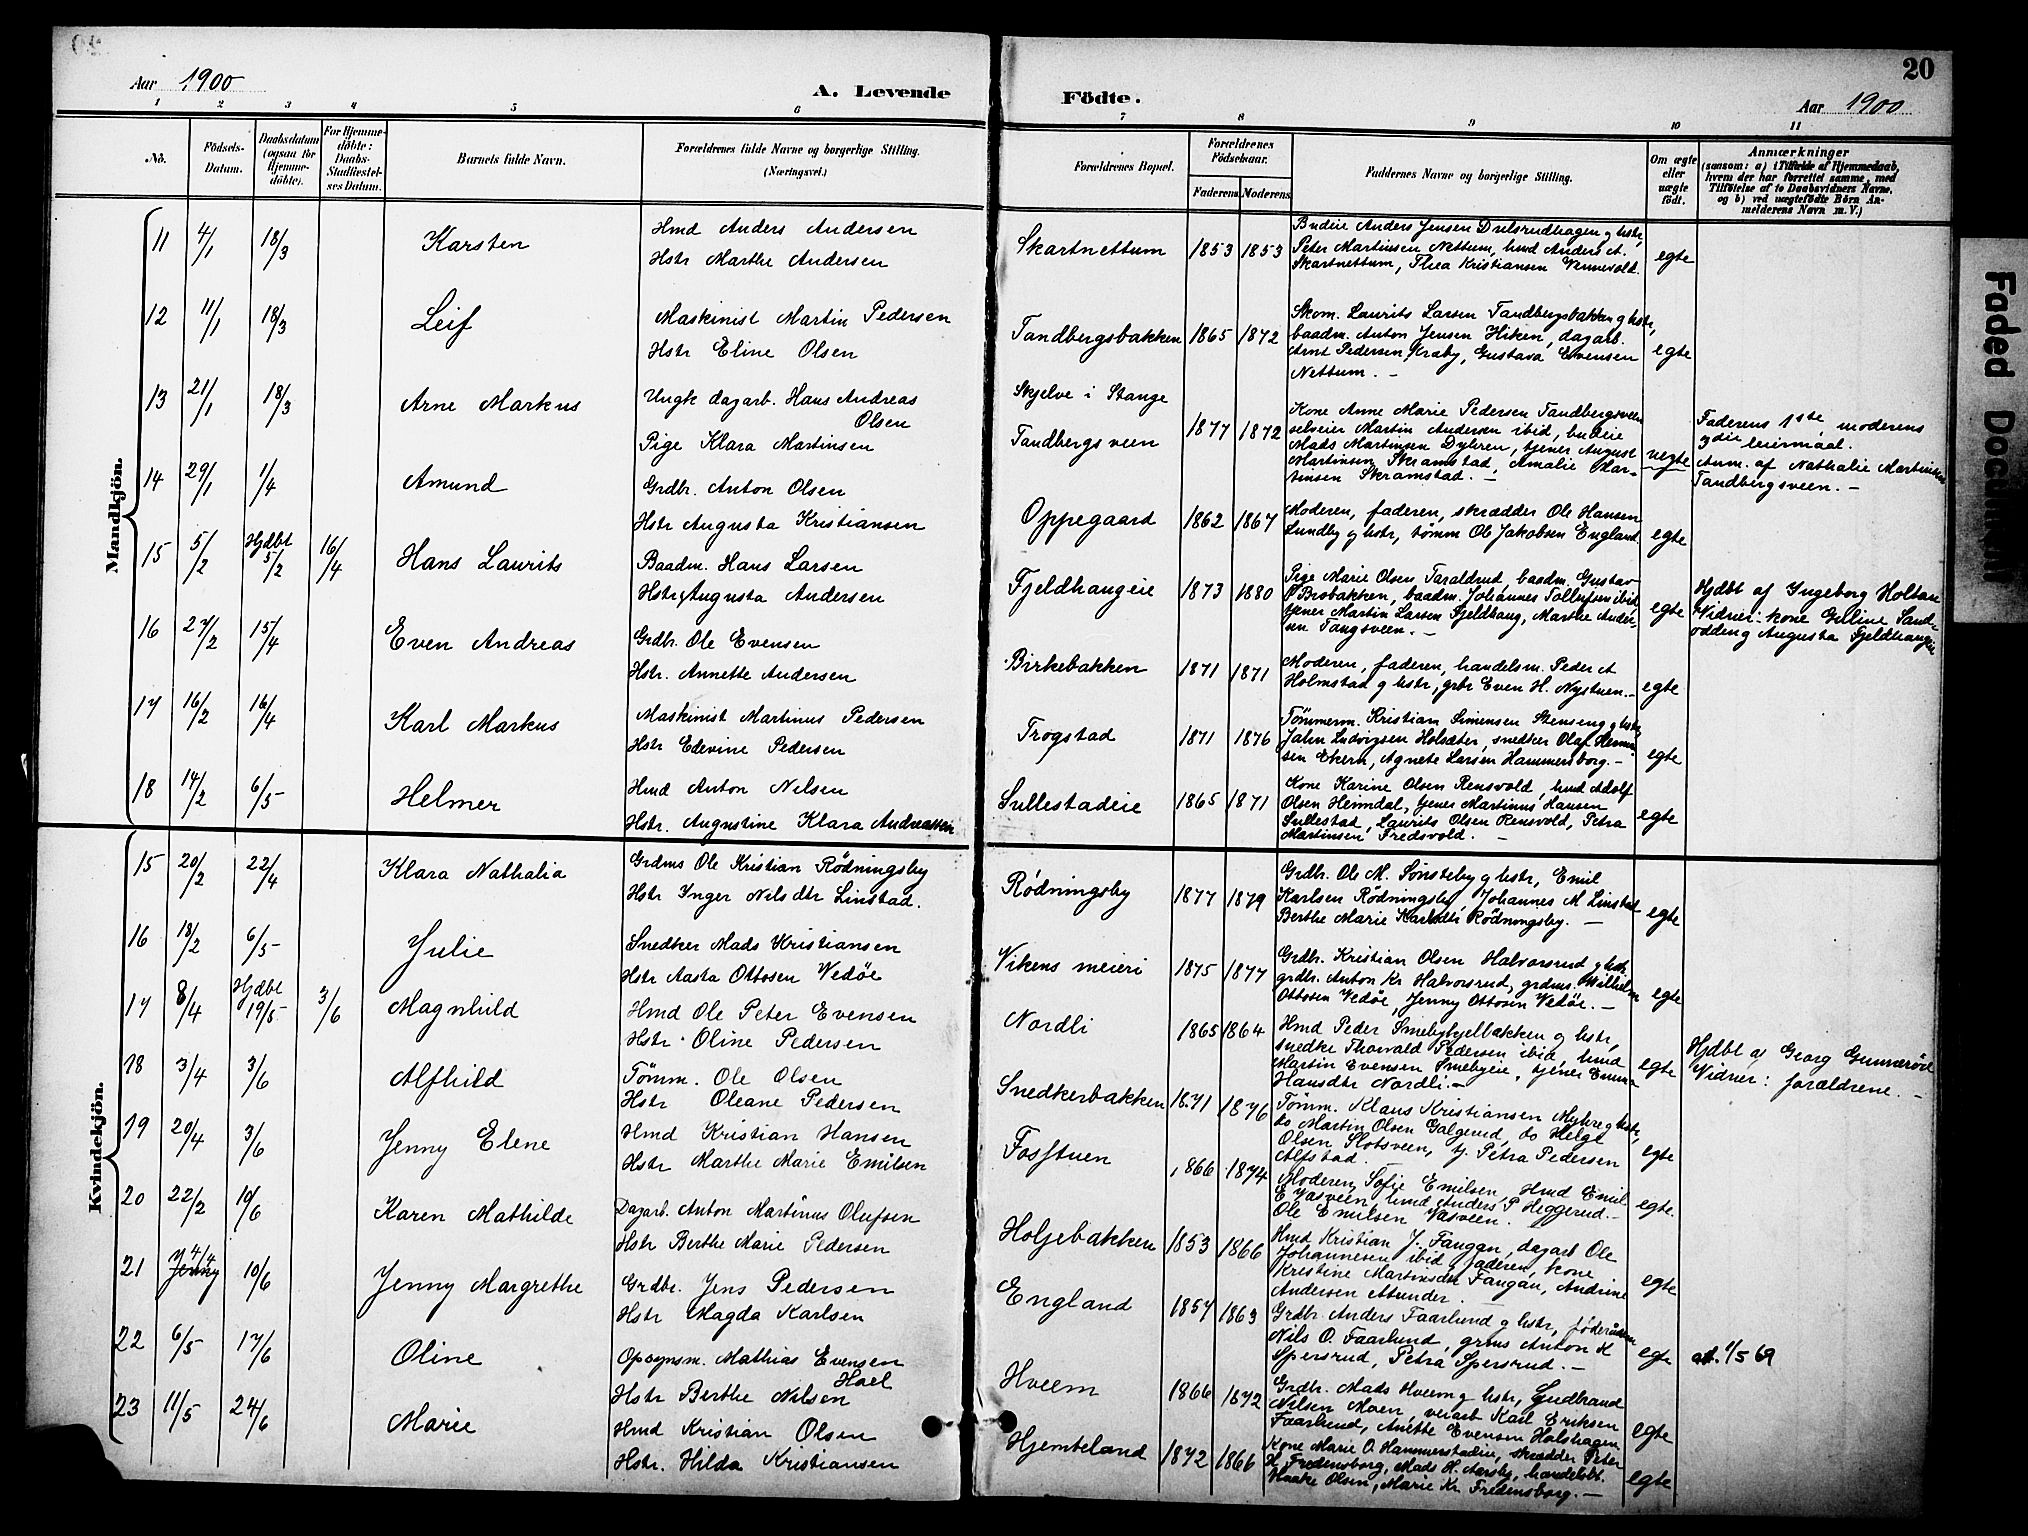 20
Aar 1900
A. Levende
Födte.
Aar 1900
1 2 3 4 5 6 7 8 9 10 11
No.
Födsels-Datum.
Daabsdatum (ogsaa for Hjemme-döbte).
For Hjemme-döbte: Daabs-Stadfæstel-ses Datum.
Barnets fulde Navn.
Forældrenes fulde Navne og borgerlige Stilling. (Næringsvei.)
Forældrenes Bopæl.
Forældrenes Födselsaar.
Faderens Moderens
Faddernes Navne og borgerlige Stilling.
Om ægte eller uægte födt.
Anmærkninger
(saasom: a) i Tilfælde af Hjemmedaab,
hvem der har forrettet samme, med
Tilföielse af to Daabsvidners Navne.
og b) ved uægtefödte Börn An-
melderens Navn m. V.)
Mandkjön.
11 4/1 18/3 Karsten
Hmd Anders Andersen
Hstr Marthe Andersen
Skartnettum 1853 1853
Budeie Anders Jensen Dulsrudhagen g hstr,
Peter Martinsen Nettum, hmd Anders A.
Skartnettum, Thea Kristiansen Vennevold.
egte
12 11/1 18/3 Leif
Maskinist Martin Pedersen
Hstr Eline Olsen
Tandbergsbakken 1865 1872
Skom. Laurits Larsen Tandbergsbakken g hstr,
baadm. Anton Jensen Hiken, dagarb.
Arnt Pedersen Kraby, Gustava Evensen
Nettum. —
egte
13 21/1 18/3 Arne Markus
Ungk dagarb. Hans Andreas
Olsen
Pige Klara Martinsen
Skjelve i Stange
Tandbergsveen 1877 1872
Kone Anne Marie Pedersen Tandbergsveen
selveier Martin Andersen ibid, budeie
Mads Martinsen Dyhren, tjener August
Martinsen Skramstad, Amalie Mar-
tinsen Skramstad. —
uegte
Faderens 1ste moderens
2die leiermaal.
Anm. af Nathalie Martinsen
Tandbergsveen. —
14 29/1 1/4 Amund
Grdbr. Anton Olsen
Hstr Augusta Kristiansen
Oppegaard 1862 1867
Moderen, faderen, skrædder Ole Hansen
Lundby g hstr, tømm Ole Jakobsen England
egte
15 5/2 Hjdbt 5/2 16/4 Hans Laurits
Baadm. Hans Larsen
Hstr Augusta Andersen
Fjeldhaugeie 1873 1880
Pige Marie Olsen Taraldrud, baadm. Gustav
Brobakken, baadm. Johannes Tollefsen ibid,
tjener Martin Larsen Fjeldhaug, Marthe Ander-
sen Tangsveen. —
egte
Hjdbt af Ingeborg Holtan
Vidner: kone Guline Sand-
odden g Augusta Fjeldhaugeie
16 27/2 15/4 Even Andreas
Grdbr. Ole Evensen
Hstr. Annette Andersen
Birkebakken 1871 1871
Moderen, faderen, handelsm. Peder A
Holmstad g hstr, grbr Even H. Nystuen. —
egte
17 16/2 16/4 Karl Markus
Maskinist Martinus Pedersen
Hstr Edevine Pedersen
Trogstad 1871 1876
Tömmerm. Kristian Simensen Stenseng g hstr,
Jahn Ludvigsen Holsæter, snedker Olaf Henrik-
sen Ekern, Agnete Larsen Hammersborg. —
egte
18 14/2 6/5 Helmer
Hmd Anton Nilsen
Hstr. Augustine Klara Andreassen
Sullestadeie 1865 1871
Kone Karine Olsen Rensvold, hmd Adolf
Olsen Heimdal, tjener Martinus Hansen
Sullestad, Laurits Olsen Rensvold, Petra
Martinsen Fredsvold. —
egte
Kvindekjön.
15 20/2 22/4 Klara Nathalia
Grdms Ole Kristian Rödningsby
Hstr Inger Nilsdtr Linstad.
Rödningsby 1877 1879
Grdbr. Ole M. Sønsteby g hstr, Emil
Karlsen Rödningsby, Johannes M Linstad
Berthe Marie Karlsdtr Rödningsby. —
egte
16 18/2 6/5 Julie
Snedker Mads Kristiansen
Hstr Aasta Ottosen Vedöe
Vikens meieri 1875 1877
Grdbr. Kristian Olsen Halvorsrud g hstr.
grdbr. Anton Kr Halvorsrud, grdms. Wilhelm
Ottosen Vedöe, Jenny Ottosen Vedöe. —
egte
17 8/4 Hjdbt 19/5 3/6 Magnhild
Hmd Ole Peter Evensen
Hstr. Oline Pedersen
Nordli 1865 1864
Hmd Peder Smebyhjelbakken g hstr,
snedke Thorvald Pedersen ibid, hmd
Martin Evensen Smebyeie, tjener Emma
Hansdtr Nordli. —
egte
Hjdbt af Georg Gunneröd
Vidner: forældrene. —
18 3/4 3/6 Alfhild
Tömm. Ole Olsen
Hstr Oleane Pedersen
Snedkerbakken 1871 1876
Tömm. Klaus Kristiansen Myhre g hstr,
do Martin Olsen Galgerud, do Helge
Olsen Slotsveen, tj. Petra Pedersen
Alfstad.
egte
19 20/4 3/6 Jenny Elene
Hmd Kristian Hansen
Hstr Marthe Marie Emilsen
Fosstuen 1866 1874
Moderen, Sofie Emilsen, Hmd Emil
E Vasveen, hmd Anders P Heggerud. —
Ole Emilsen Vasveen.
egte.
20 22/2 10/6 Karen Mathilde
Dagarb. Anton Martinus Olufsen
Hstr Berthe Marie Pedersen
Holjebakken 1853 1866
Hmd Kristian J. Fangan, dagarb Ole
Johannesen ibid, faderen, kone
Kristine Martinsdtr Fangan, Andrine
Andersen Attunder. —
egte
21 4/4 10/6 Jenny Margrethe
Grdbr. Jens Pedersen
Hstr Magda Karlsen
England 1857 1863
Grdbr Anders Faarlund g hstr, föderaadsm
Nils O. Faarlund, grms Anton H
Spersrud, Petra Spersrud. —
egte
att. 1/5 69
22 6/5 17/6 Oline
Opsynsm. Mathias Evensen
Hoel
Hstr Berthe Nilsen
Hveem 1866 1872
Grdbr. Mads Hveem g hstr, Gudbrand
Nilsen Moen, veiarb Karl Eriksen
Faarlund, Anette Evensen Holshagen
egte
23 11/5 24/6 Marie
Hmd Kristian Olsen
Hstr. Hilda Kristiansen
Hjemteland 1872 1866
Kone Marie O. Hammerstadeie, skrædder Peter
H Fredensborg, Mads H. Aarsby, handelsbt.
Haake Olsen, Marie Kr Fredensborg. —
egte
Faded Document